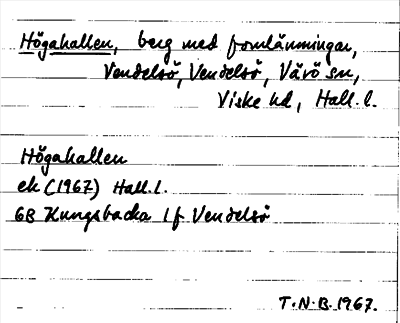 Högahallen, berg med fornlämningar,
Vendelsö, Vendelsö, Värö sn,
Viske hd, Hall. l.
Högahallen
ek (1967) Hall. l.
6B Kungsbacka 1f Vendelsö
T.N.B. 1967.